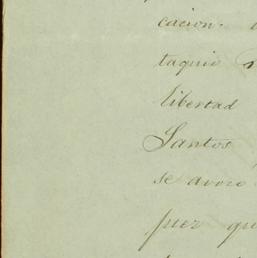 cacion.
taquio
libertad
Santos
se avoco
juez qu